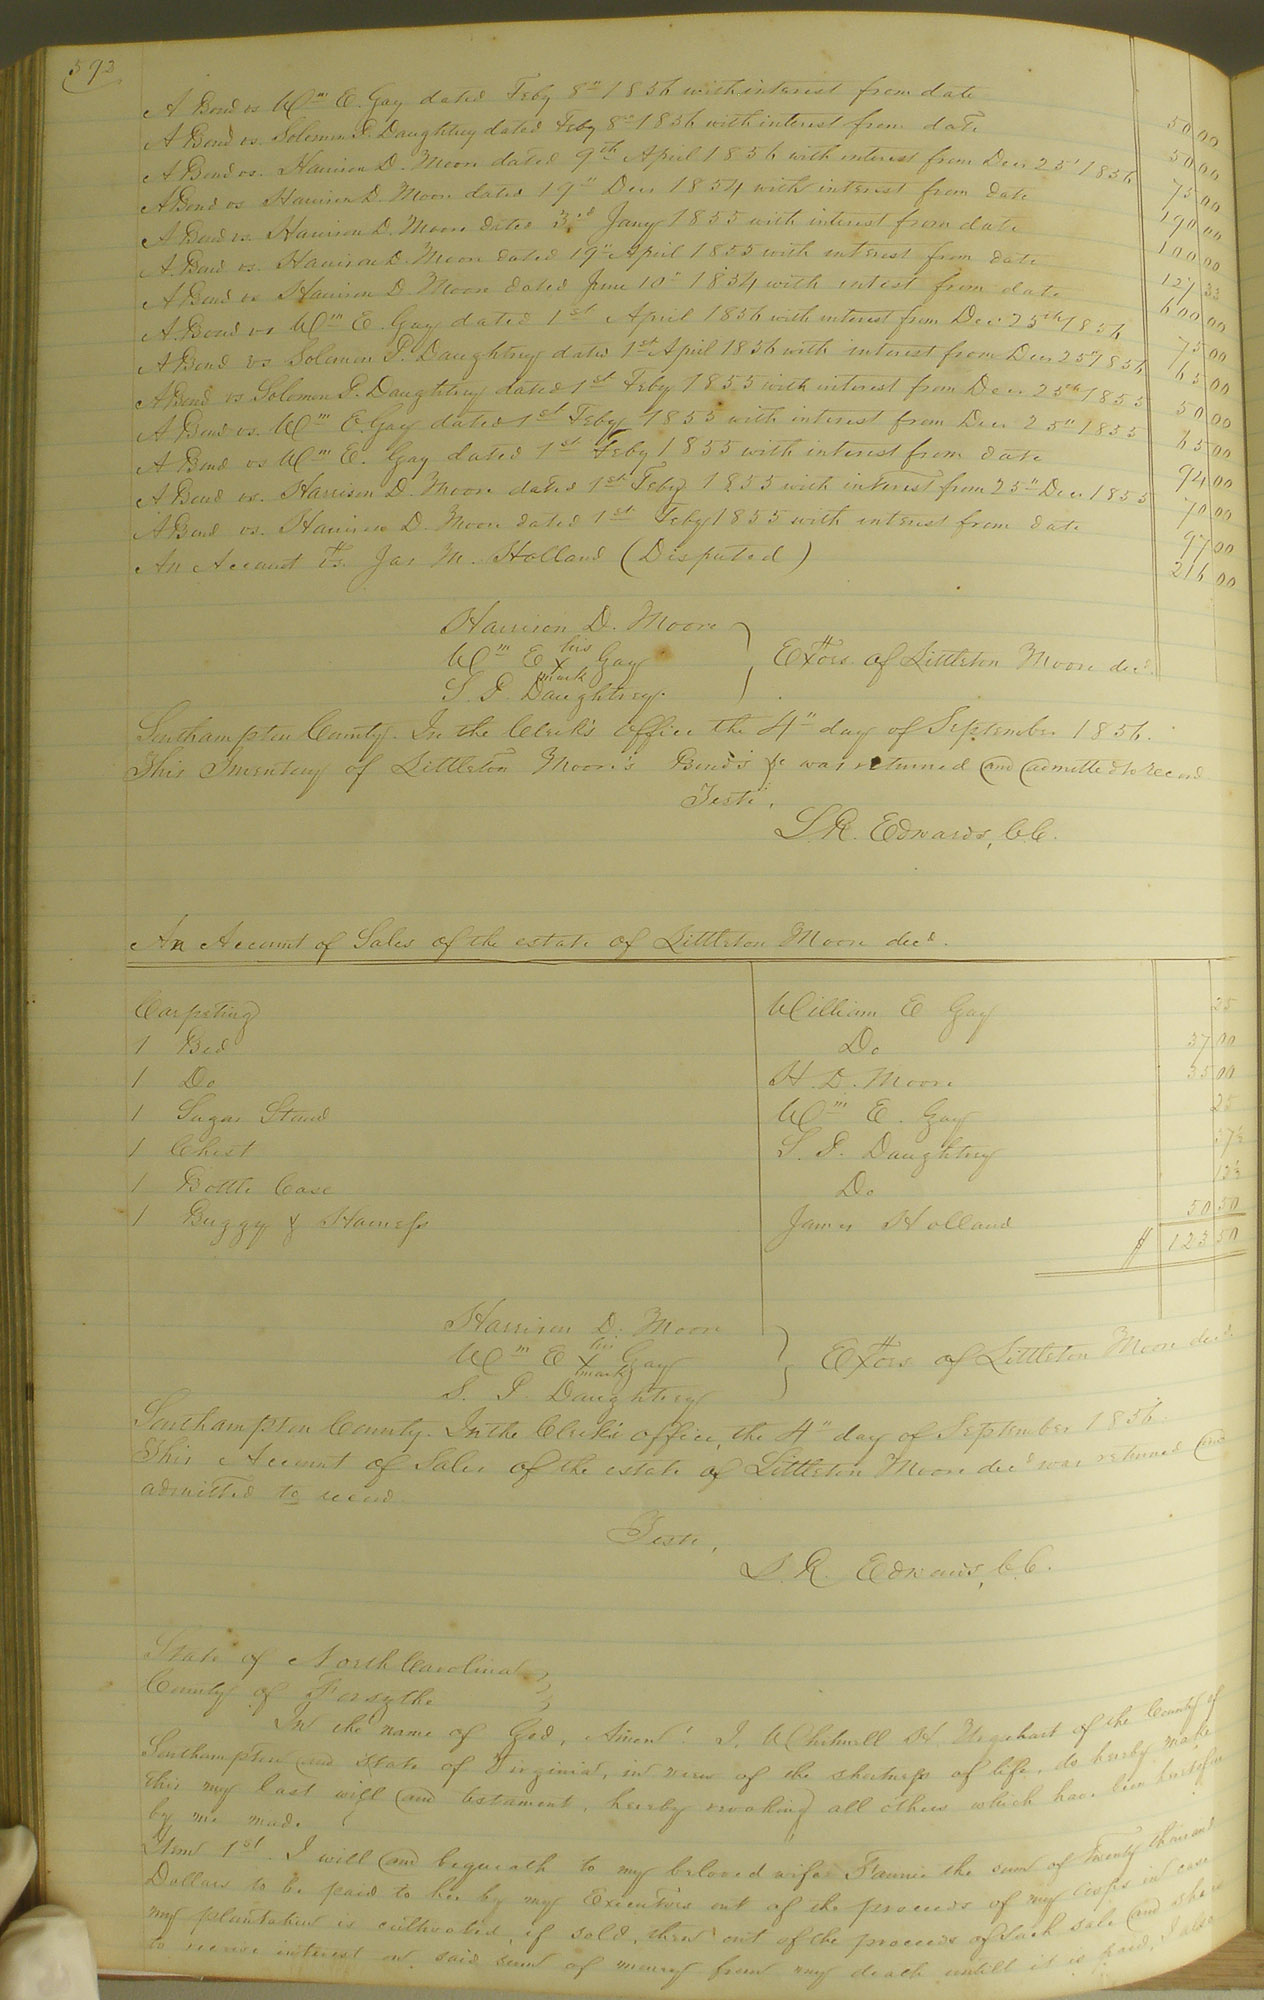 592
A Bond vs Wm E. Gay dated Feby 8" 1856 with interest from date 50 00
A Bond vs. Solomon P. Daughtrey dated Feby 8" 1856 with interest from date 50 00
A Bond vs. Harrison D. Moore dated 9th April 1856 with interest from Decr 25" 1856 75 00
A Bond vs Harrison D. Moore dated 19" Decr 1854 with interest from date 190 00
A Bond vs. Harrison D. Moore dated 3rd Jany 1855 with interest from date 100 00
A Bond vs. Harrison D. Moore dated 19" April 1855 with interest from date 127 33
A Bond vs Harrison D Moore dated June 10" 1854 with intest from date 600 00
A Bond vs Wm E. Gay dated 1st April 1856 with interest from Decr 25th 1856 75 00
A Bond vs Solomon P. Daughtrey dated 1st April 1856 with interest from Decr 25" 1856 65 00
A Bond vs Solomon P. Daughtrey dated 1st Feby 1855 with interest from Decr 25th 1855 50 00
A Bond vs. Wm E. Gay dated 1st Feby 1855 with interest from Decr 25" 1855 65 00
A Bond vs Wm E. Gay dated 1st Feby 1855 with interest from date 94 00
A Bond vs. Harrison D. Moore dated 1st Feby 1855 with interest from 25" Decr 1855 70 00
A Bond vs. Harrison D. Moore dated 1st Feby 1855 with interest from date 97 00
An Account vs. Jas M. Holland (Disputed) 216 00
Harrison D. Moore
Wm E his X mark Gay } Extors of Littleton Moore decd.
S. P. Daughtrey.
Southampton County. In the Clerk's Office the 4" day of September 1856.
This Inventory of Littleton Moore's Bonds &c was returned and admitted to record
Teste,
L. R. Edwards, C.C.
An Account of Sales of the estate of Littleton Moore decd.
Carpeting William E Gay 25
1 Bed Do 37 00
1 Do H. D. Moore 35 00
1 Sugar Stand Wm E. Gay 25
1 Chest S. P. Daughtrey 37½
1 Bottle Case Do 12½
1 Buggy & Harness James Holland 50 50
$ 123 50
Harrison D. Moore
Wm E his X mark Gay } Extors of Littleton Moore decd.
S. P. Daughtrey
Southampton County. In the Clerk's office, the 4" day of September 1856.
This Account of Sales of the estate of Littleton Moore decd was returned and
admitted to record.
Teste,
L. R. Edwards, C.C.
State of North Carolina }
County of Forsythe }
In the name of God, Amen! I, Whitmell H. Urquhart of the County of
Southampton and State of Virginia, in view of the shortness of life, do hereby make
this my last will and testament, hereby revoking all others which have been heretofore
by me made.
Item 1st. I will and bequeath to my beloved wife Fannie the sum of Twenty thousand
Dollars to be paid to her by my Executors out of the proceeds of my crops in case
my plantation is cultivated, if sold, then out of the proceeds of such sale and she is
to receive interest on said sum of money from my death untill it is paid, I also